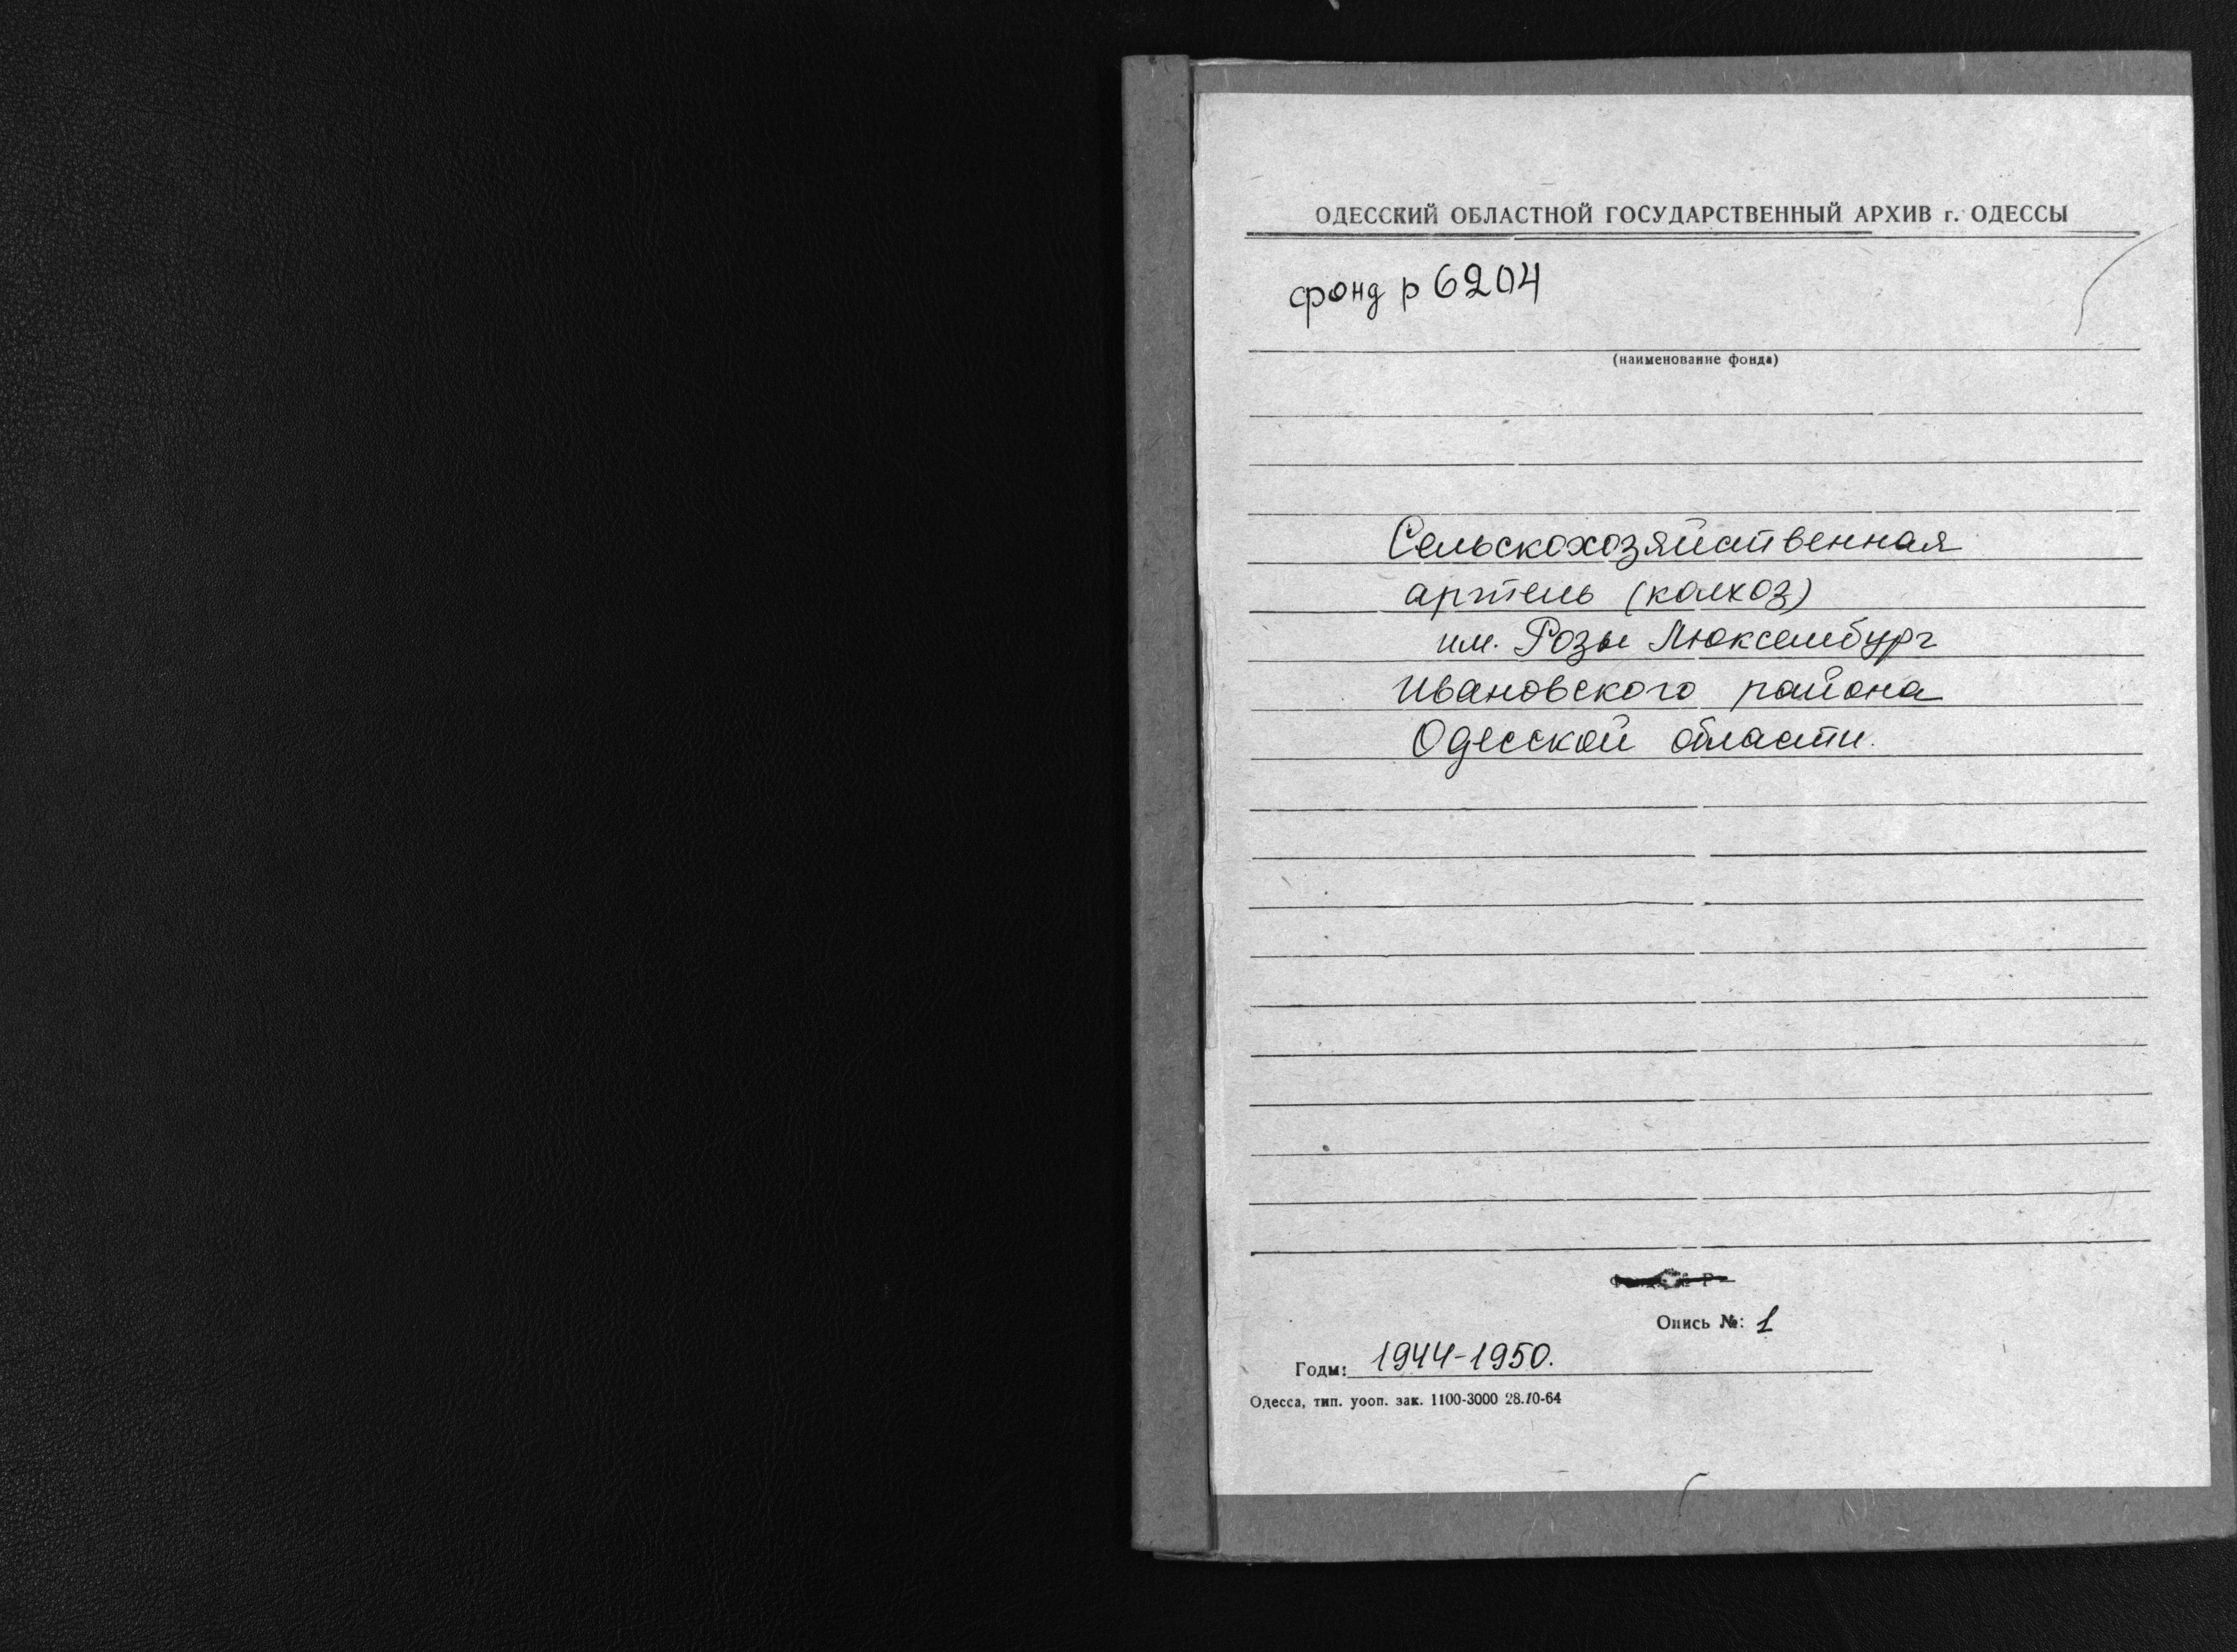 ОДЕССКИЙ ОБЛАСТНОЙ ГОСУДАРСТВЕННЫЙ АРХИВ г. ОДЕССЫ
фонд р 6204
(наименование фонда)
Сельскохозяйственная
артель (колхоз)
им. Розы Люксембург
Ивановского района
Одесской области.
Опись №: 1
Годы: 1944-1950.
Одесса, тип. уооп. зак. 1100-3000 28.10-64